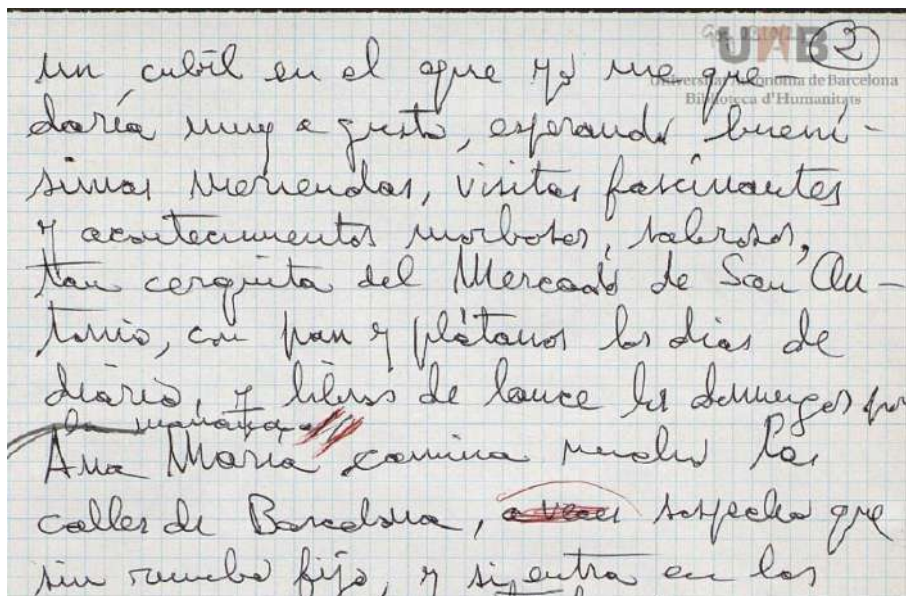 2
UAB
Universitat Autònoma de Barcelona
Biblioteca d'Humanitats
un cubil en el que yo me que-
daría muy a gusto, esperando buení-
simas meriendas, visitas fascinantes
y acontecimientos morbosos, sabrosos,
tan cerquita del Mercado de San An-
tonio, con pan y plátanos los días de
diario, y libros de lance los domingos por
la mañana.
Ana María camina mucho las
calles de Barcelona, a veces sospecho que
sin rumbo fijo, y si entra en los